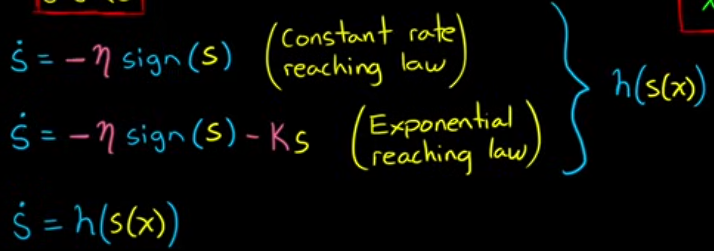 ṡ = -η sign(s) (constant rate
reaching law)
ṡ = -η sign(s) - Ks (Exponential
reaching law)
h(s(x))
ṡ = h(s(x))